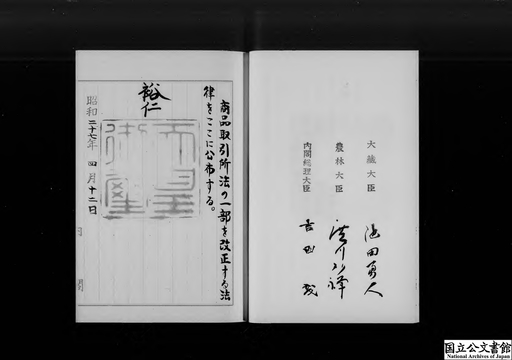 商品取引所法の一部を改正する法
律をここに公布する。
裕仁
天皇
御璽
昭和二十七年四月十二日
大蔵大臣 池田勇人
農林大臣 廣川弘禅
内閣総理大臣 吉田茂
国立公文書館
National Archives of Japan